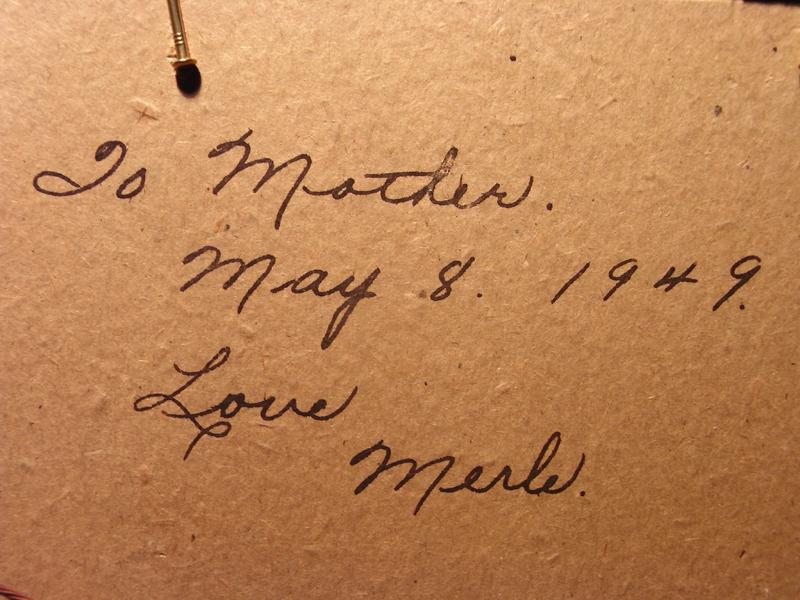 To Mother.
May 8. 1949.
Love
Merle.